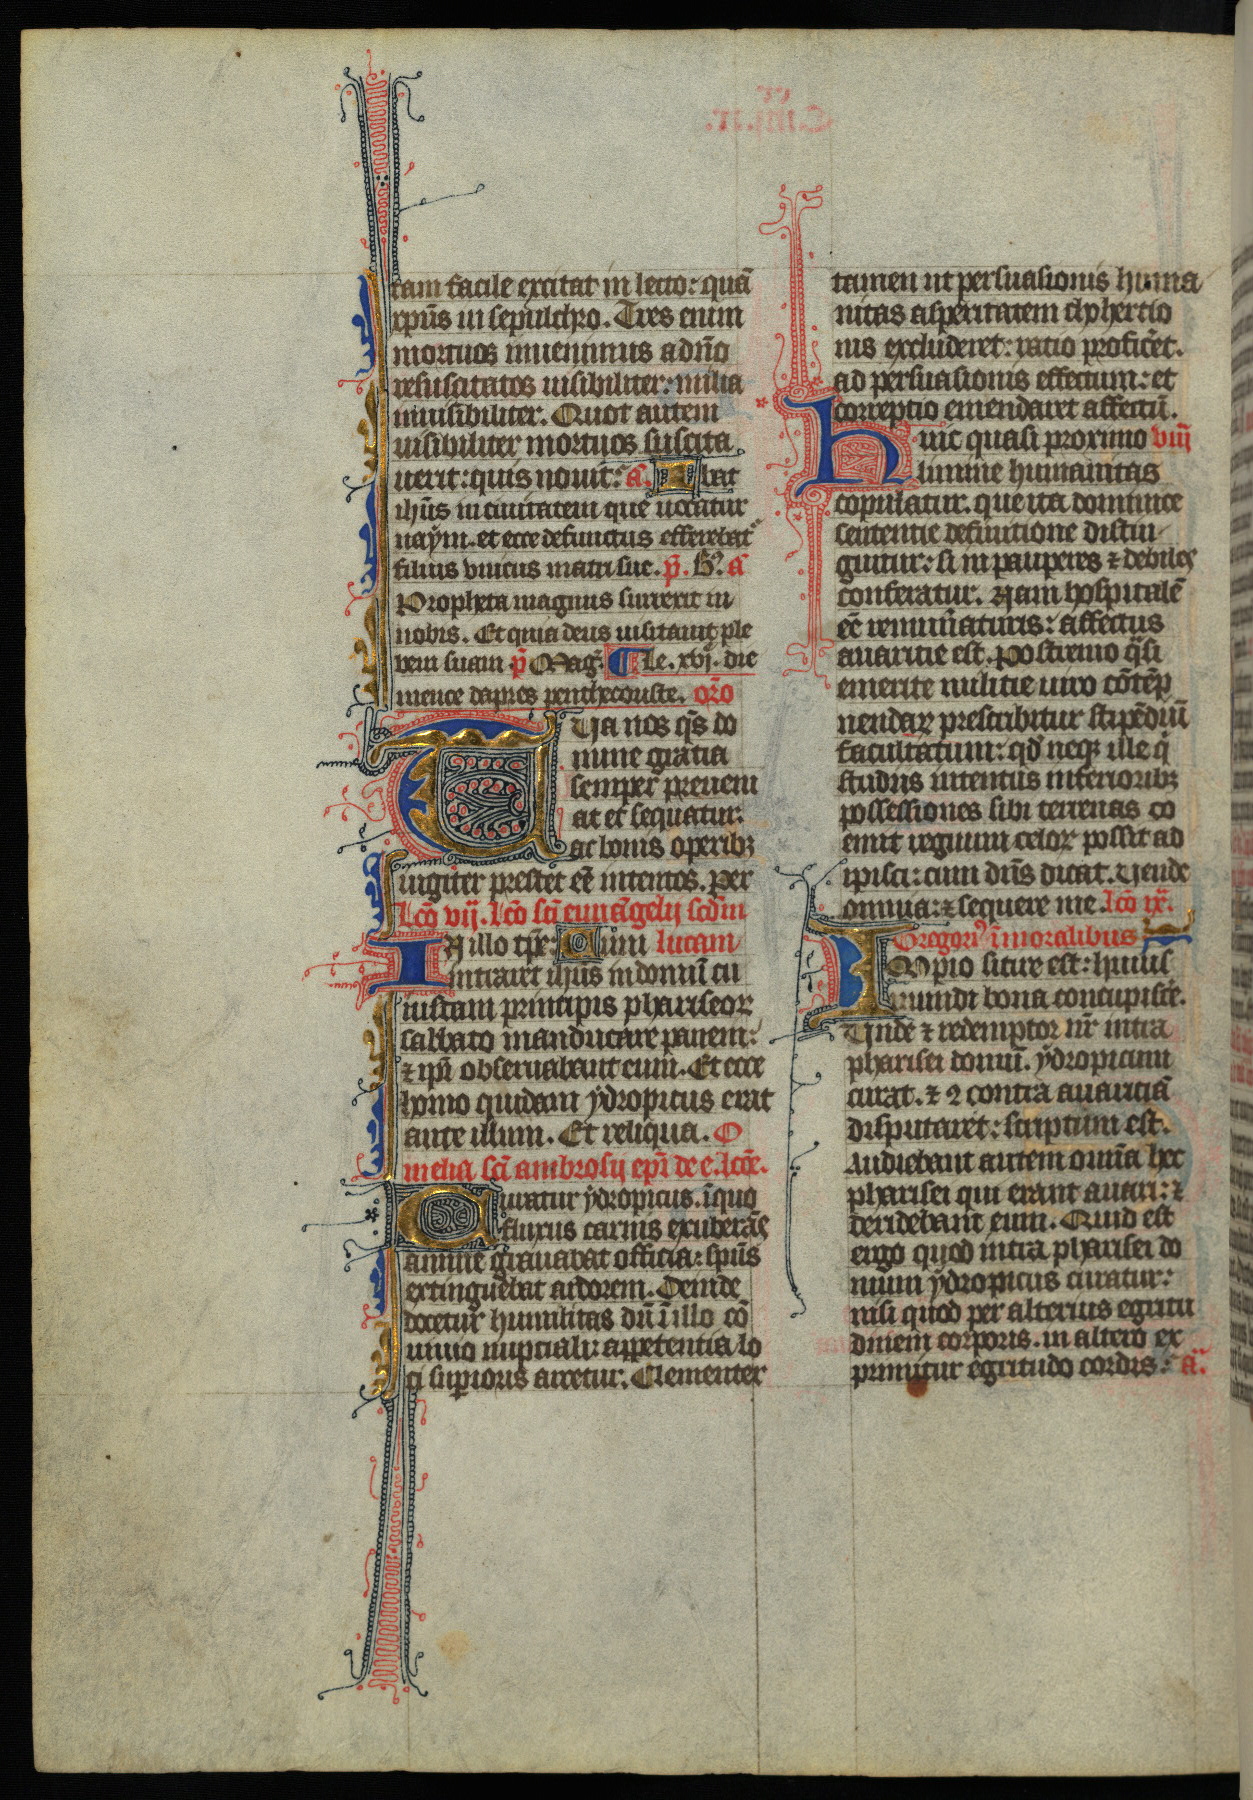 tam facile excitat in lecto: quā
xp̄us in sepulchro. Tres enim
mortuos inuenimus a dn̄o
resuscitatos uisibiliter: milia
inuisibiliter. Quot autem
uisibiliter mortuos suscita
uerit: quis nouit: a. Ibat
ih̄us in ciuitatem que uocatur
naym. et ecce defunctus efferebat
filius vnicus matri sue. p̄. a
Propheta magnus surrexit in
nobis. Et quia deus uisitauit ple
bem suam p̄ Mag. Le. xvj. die
mence dapres penthecouste. or̄o
Tua nos q̄s do
mine gratia
semper preueni
at et sequatur:
ac bonis operibꝫ
iugiter prestet eē intentos. Per
lc̄o vij. lc̄o sc̄i euuāgelij scd̄m
In illo tp̄e: Cum lucam
intraret ih̄us in domū cu
iusdam principis phariseoꝝ
sabbato manducare panem:
⁊ ip̄i obseruabant eum. Et ecce
homo quidam ydropicus erat
ante illum. Et reliqua. O
melia sc̄i ambrosij ep̄i de e. lc̄oe.
Curatur ydropicus. ī quo
fluxus carnis exuberās
anime grauabat officia: sp̄us
extinguebat ardorem. Deinde
docetur humilitas dū ī illo cō
uiuio nuptiali: appetentia lo
ci supioris arcetur. Clementer
tamen ut persuasionis huma
nitas asperitatem chohertio
nis excluderet: ratio proficēt.
ad persuasionis effectum: et
correptio emendaret affectū.
huic quasi proximo viij
limine humanitas
copulatur. que ita dominice
sententie definitione distin
guitur: si in pauperes ⁊ debiles
conferatur. Nam hospitalē
eē remūaturis: affectus
auaritie est. Postremo q̄si
emerite militie uiro cōtēp
nendaꝝ prescribitur stipēdiū
facultatum: qd̄ neqꝫ ille q̄
studiis intentus inferioribꝫ
possessiones sibi terrenas co
emit regnum celoꝝ possit ad
ipisci: cum dn̄s dicat. Uende
omnia: ⁊ sequere me. lc̄o ix.
Gregori⁹ ī moralibus
Ipio sitire est: huius
mundi bona concupisce.
Unde ⁊ redemptor nr̄ intra
pharisei domū. ydropicum
curat. ⁊ 2 contra auaritiā
disputaret: scriptum est.
Audiebant autem omīa hec
pharisei qui erant auari: ⁊
deridebant eum. Quid est
ergo quod intra pharisei do
mum ydropicus curatur:
nisi quod per alterius egritu
dinem corporis. in altero ex
primitur egritudo cordis: a.